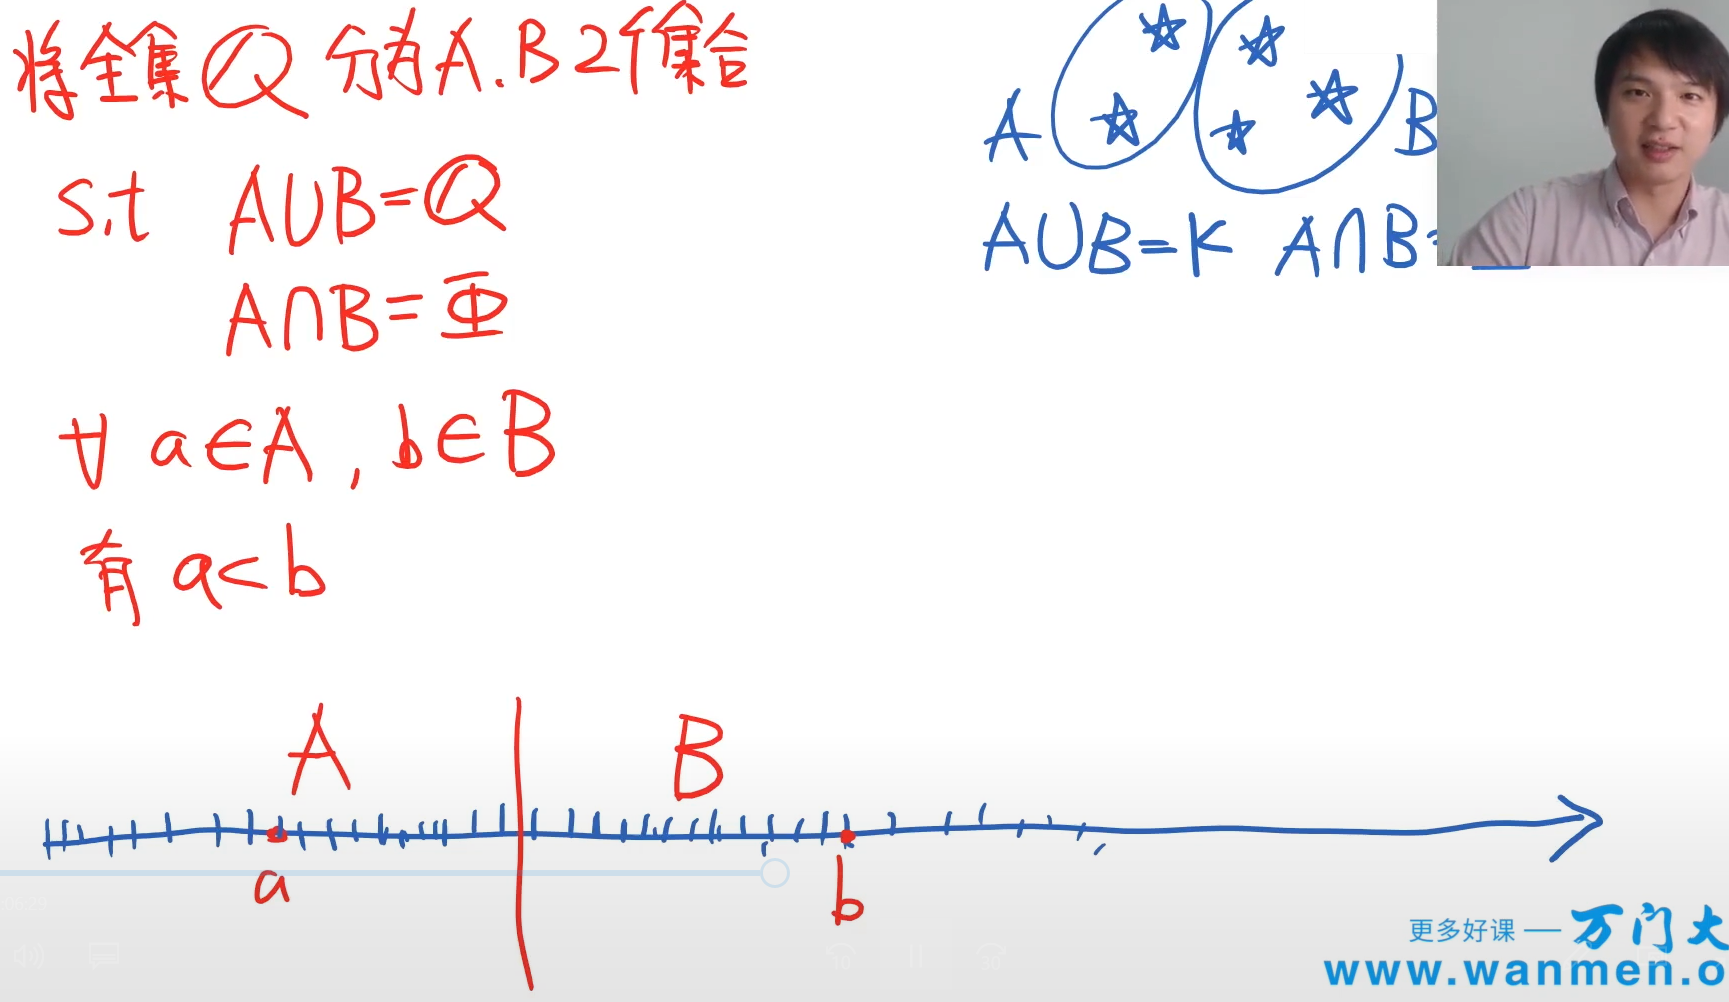 将全集Q分为A.B 2个集合
s.t A∪B=Q
A∩B=Φ
∀ a∈A, b∈B
有 a<b
A B
A∪B=K A∩B=
A B
a b
更多好课 — 万门大
www.wanmen.o